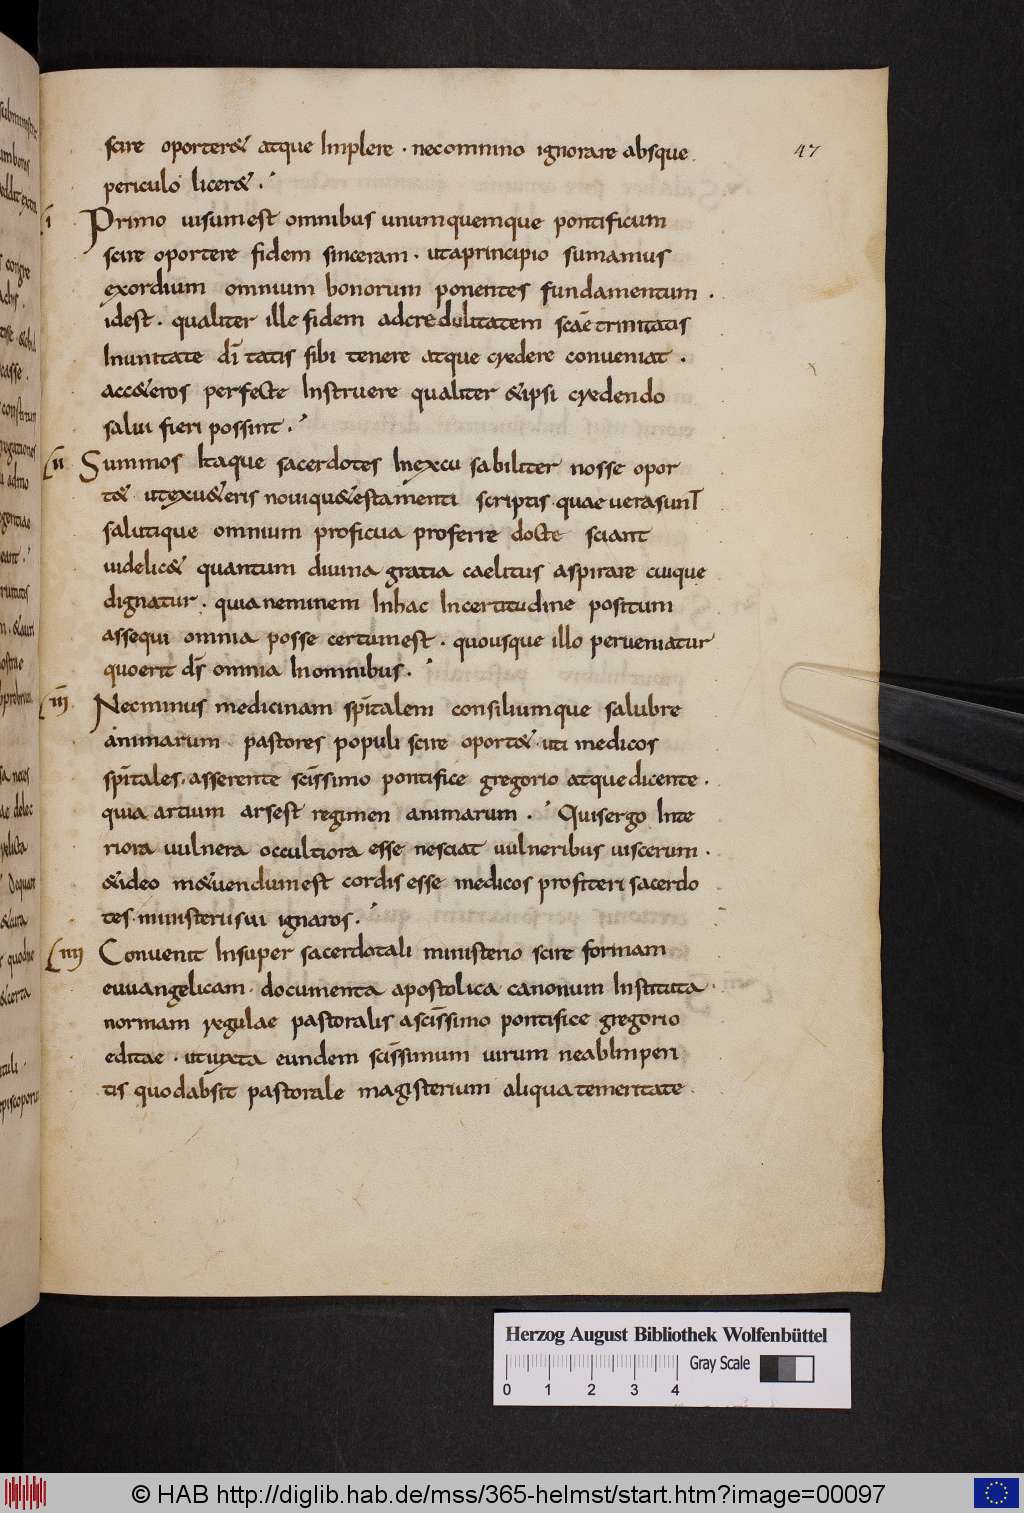 47
scire oporter& atque Implere · necomnino ignorare absque
periculo licer&.
i Primo uisumest omnibus unumquemque pontificum
scire oportere fidem sinceram · utaprincipio sumamus
exordium omnium bonorum ponentes fundamentum .
idest . qualiter ille fidem adcredulitatem scae trinitatis
Inunitate dī tatis sibi tenere atque credere conueniat .
acc&eros perfecte Instruere qualiter &ipsi credendo
salui fieri possint .
ii Summos Itaque sacerdotes Inexcu sabiliter nosse opor
t& utexu&eris nouiqu&estamenti scriptis · quae uerasunt
salutique omnium proficua proferre docte sciant
uidelic& quantum diuina gratia caelitus aspirare cuique
dignatur . quianeminem Inhac Incertitudine positum
assequi omnia posse certumest . quousque illo perueniatur
quoerit ds̄ omnia Inomnibus .
iii Necminus medicinam spītalem consiliumque salubre
animarum pastores populi scire oport& · uti medicos
spītales · asserente scīssimo pontifice gregorio atquedicente .
quia artium arsest regimen animarum . Quisergo Inte
riora uulnera occultiora esse nesciat uulneribus uiscerum .
&ideo m&uendumest cordis esse medicos profiteri sacerdo
tes · ministeriisui ignaros .
iiii Conuenit Insuper sacerdotali ministerio scire formam
euuangelicam · documenta apostolica canonum Instituta ·
normam regulae pastoralis ascīssimo pontifice gregorio
editae · utiuxta eundem scīssimum uirum neabImperi
tis quodabsit pastorale magisterium aliqua temeritate
Herzog August Bibliothek Wolfenbüttel
Gray Scale
0 1 2 3 4
© HAB http://diglib.hab.de/mss/365-helmst/start.htm?image=00097